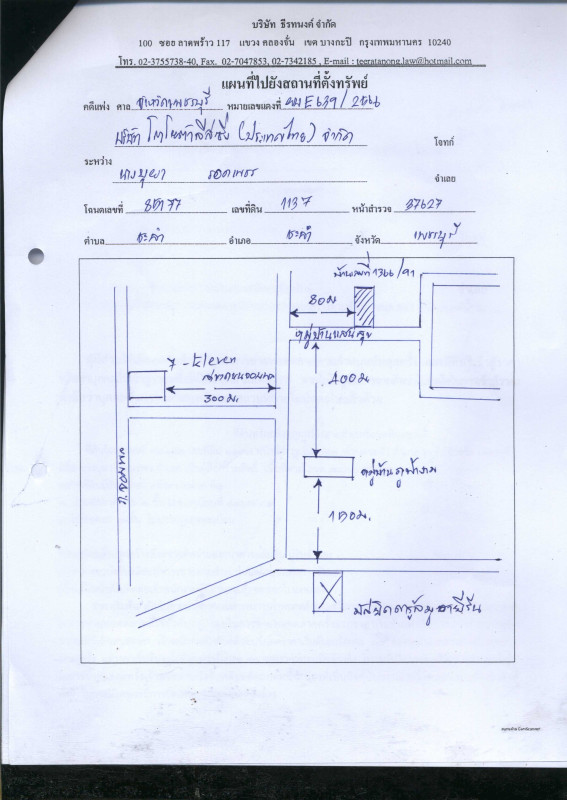 บริษัท ธีรทนงค์ จำกัด
100 ซอย ลาดพร้าว 117 แขวง คลองจั่น เขต บางกะปิ กรุงเทพมหานคร 10240
โทร. 02-3755738-40, Fax. 02-7047853, 02-7342185 , E-mail : teeratanong.law@hotmail.com
แผนที่ไปยังสถานที่ตั้งทรัพย์
คดีแพ่ง ศาล จังหวัดเพชรบุรี หมายเลขแดงที่ ผบE639/2566
บริษัท โตโยต้าลีสซิ่ง (ประเทศไทย) จำกัด โจทก์
ระหว่าง
รอดเพชร จำเลย
โฉนดเลขที่ เลขที่ดิน 1137 หน้าสำรวจ 37627
ตำบล ชะอำ อำเภอ ชะอำ จังหวัด เพชรบุรี
บ้านเลขที่ 1366/91
80 ม
หมู่บ้านแสนสุข
7 - Eleven
300 ม.
400 ม
หมู่บ้านภูฟ้างาม
150 ม.